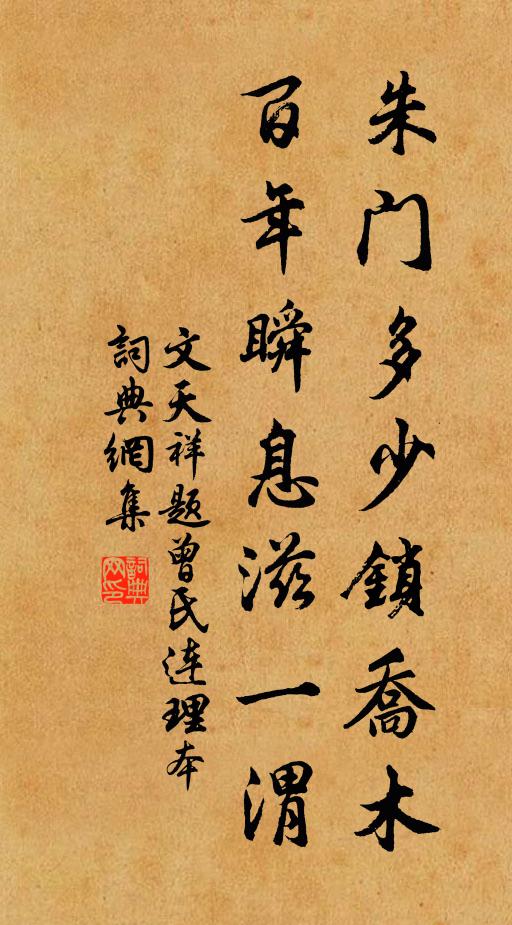 朱门多少鎖喬木
百年瞬息滋一渭
文天祥题曾氏连理本
詞典網集
詞典网印